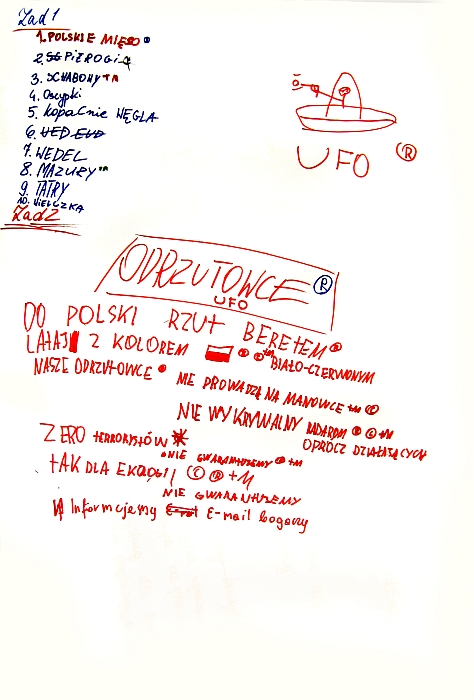 Zad 1
1. POLSKIE MIĘSO ®
2. PIEROGI
3. SCHABOWY TM
4. Oscypki
5. kopalnie WĘGLA
6.
7. WEDEL
8. MAZURY TM
9. TATRY
10. WIELICZKA
UFO ®
Zad 2
ODRZUTOWCE ®
UFO
DO POLSKI RZUT BERETEM ®
LATAJ Z KOLOREM BIAŁO-CZERWONYM
NASZE ODRZUTOWCE ®
NIE PROWADZĄ NA MANOWCE TM ©
NIE WYKRYWALNY RADAROM ® © TM
OPRÓCZ DZIAŁAJĄCYCH
ZERO TERRORYSTÓW *
*NIE GWARANTUJEMY ® TM
TAK DLA EKOLOGII © ® TM
NIE GWARANTUJEMY
Informujemy E-mail bogaczy